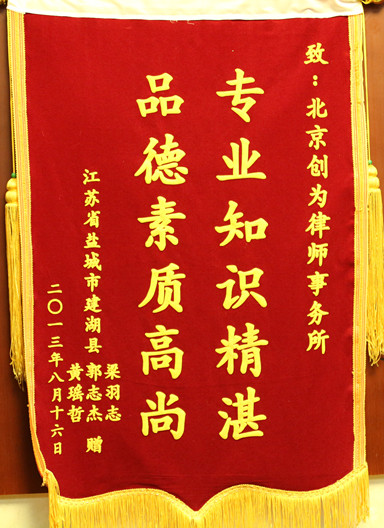 致：北京创为律师事务所
专业知识精湛
品德素质高尚
江苏省盐城市建湖县
梁羽志
郭志杰
黄瑤哲
赠
二〇一三年八月十六日